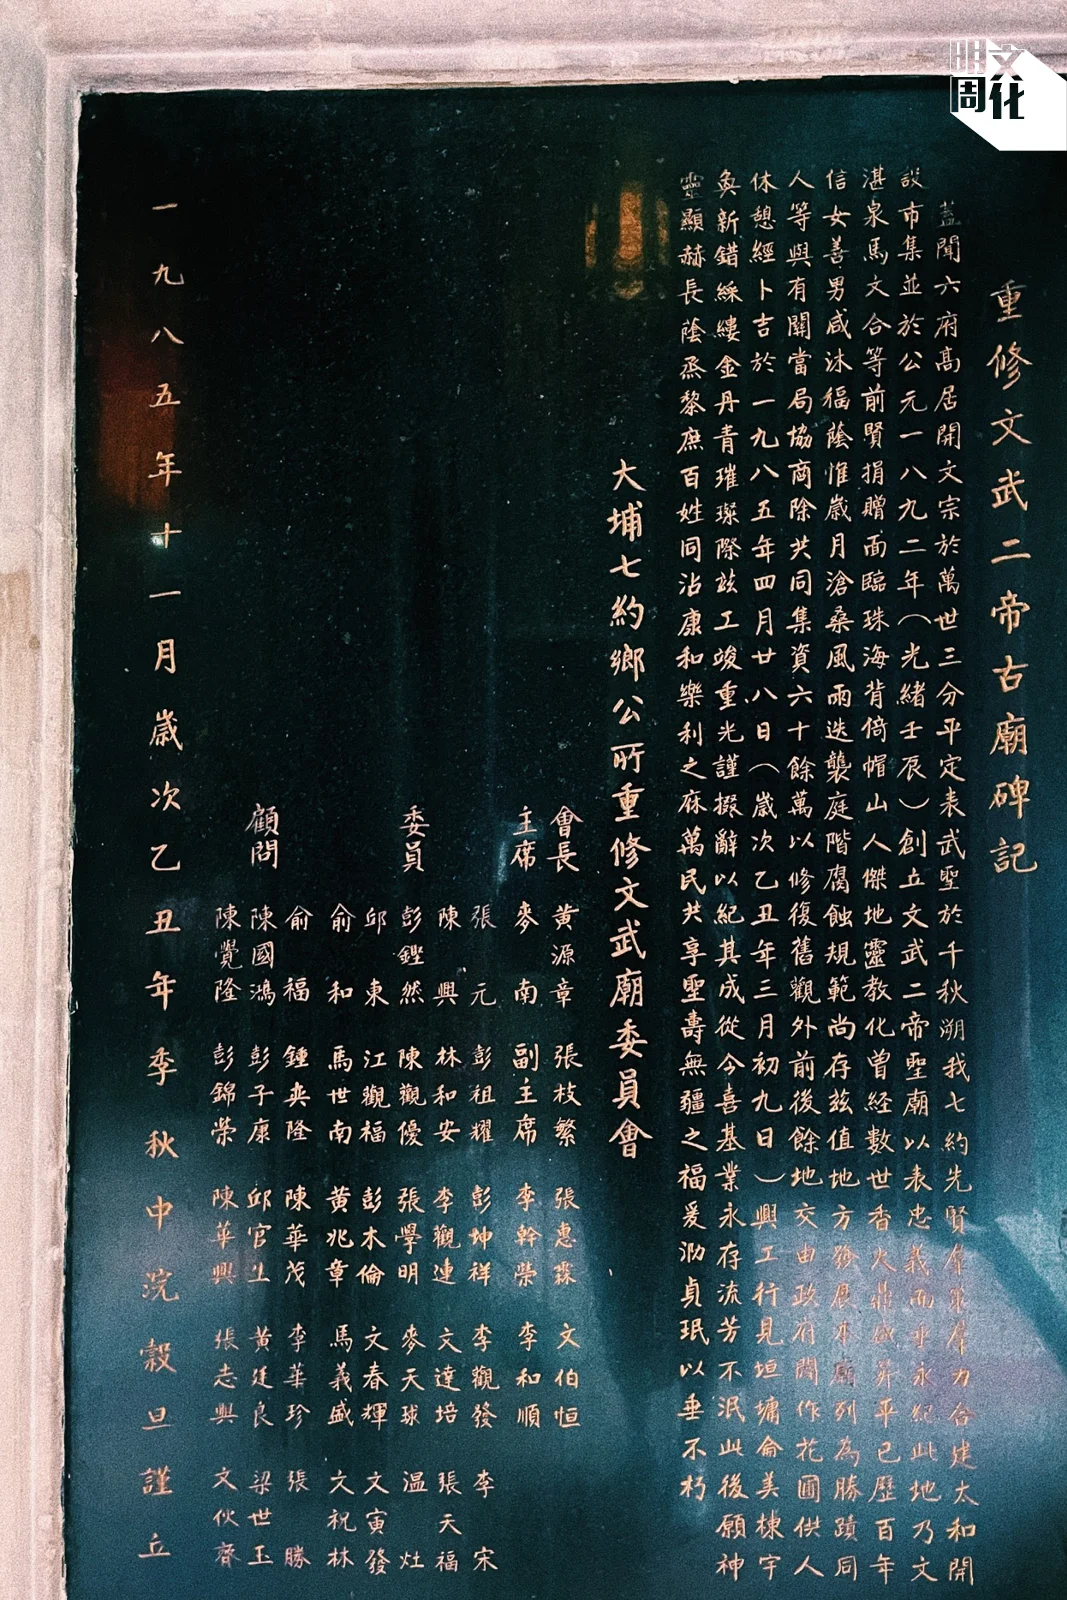 明周文化
重修文武二帝古廟碑記
蓋聞六府高居開文宗於萬世三分平定表武聖於千秋溯我七約先賢羣策羣力合建太和開
設市集並於公元一八九二年（光緒壬辰）創立文武二帝聖廟以表忠義而垂永紀此地乃文
湛泉馬文合等前賢捐贈面臨珠海背倚帽山人傑地靈教化曾經數世香火鼎盛昇平已歷百年
信女善男咸沐福蔭惟歲月滄桑風雨迭襲庭階腐蝕規範尚存茲值地方發展本廟列為勝蹟同
人等與有關當局協商除共同集資六十餘萬以修復舊觀外前後餘地交由政府闢作花圃供人
休憩經卜吉於一九八五年四月廿八日（歲次乙丑年三月初九日）興工行見垣墉侖美棟宇
奐新錯綵縷金丹青璀璨際玆工竣重光謹掇辭以紀其成從今喜基業永存流芳不泯此後願神
靈顯赫長蔭烝黎庶百姓同沾康和樂利之庥萬民共享聖壽無疆之福爰泐貞珉以垂不朽
大埔七約鄉公所重修文武廟委員會
會長 黃源章 張枝繁 張惠霖 文伯恒
主席 麥南 副主席 李幹榮 李和順
張元 彭祖耀 彭坤祥 李觀發 李宋
陳興 林和安 李觀連 文達培 張天福
委員 彭鏗然 陳觀優 張學明 麥天球 温灶
邱東 江觀福 彭木倫 文春輝 文寅發
俞和 馬世南 黃兆章 馬義盛 文祝林
俞福 鍾奕隆 陳華茂 李華珍 張勝
顧問 陳國鴻 彭子康 邱官生 黃廷良 梁世玉
陳覺隆 彭錦榮 陳華興 張志興 文伙齊
一九八五年十一月歲次乙丑年季秋中浣穀旦謹立